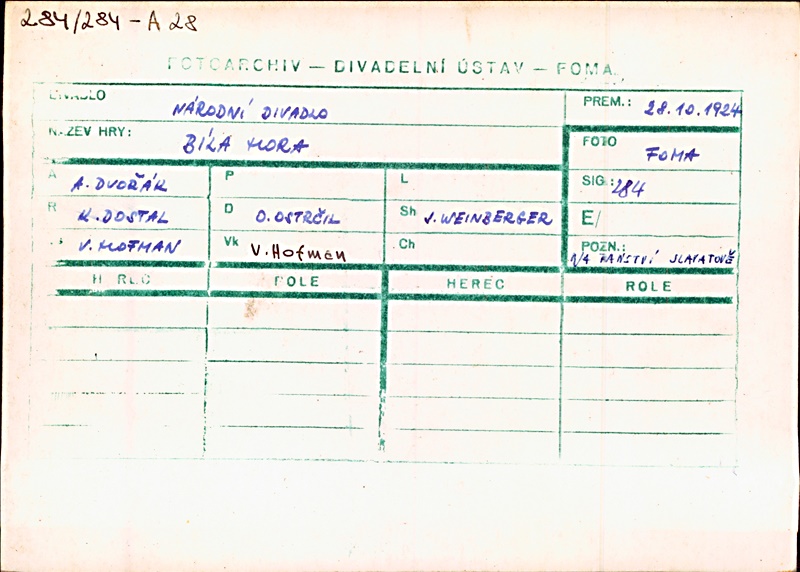 284/284 - A 28
FOTOARCHIV — DIVADELNÍ ÚSTAV — FOMA
DIVADLO NÁRODNÍ DIVADLO PREM.: 28.10.1924
NÁZEV HRY: BÍLÁ HORA FOTO FOMA
A A. DVOŘÁK P L SIG.: 284
R K. DOSTAL D O. OSTRČIL Sh J. WEINBERGER E/
V. HOFMAN Vk V. Hofman Ch POZN.:
NA PANSTVÍ SLAVATOVĚ
HEREC ROLE HEREC ROLE